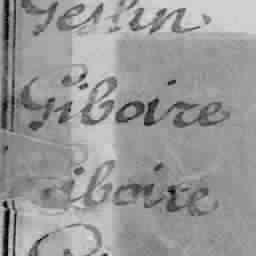 Geslin
Giboire
Giboire